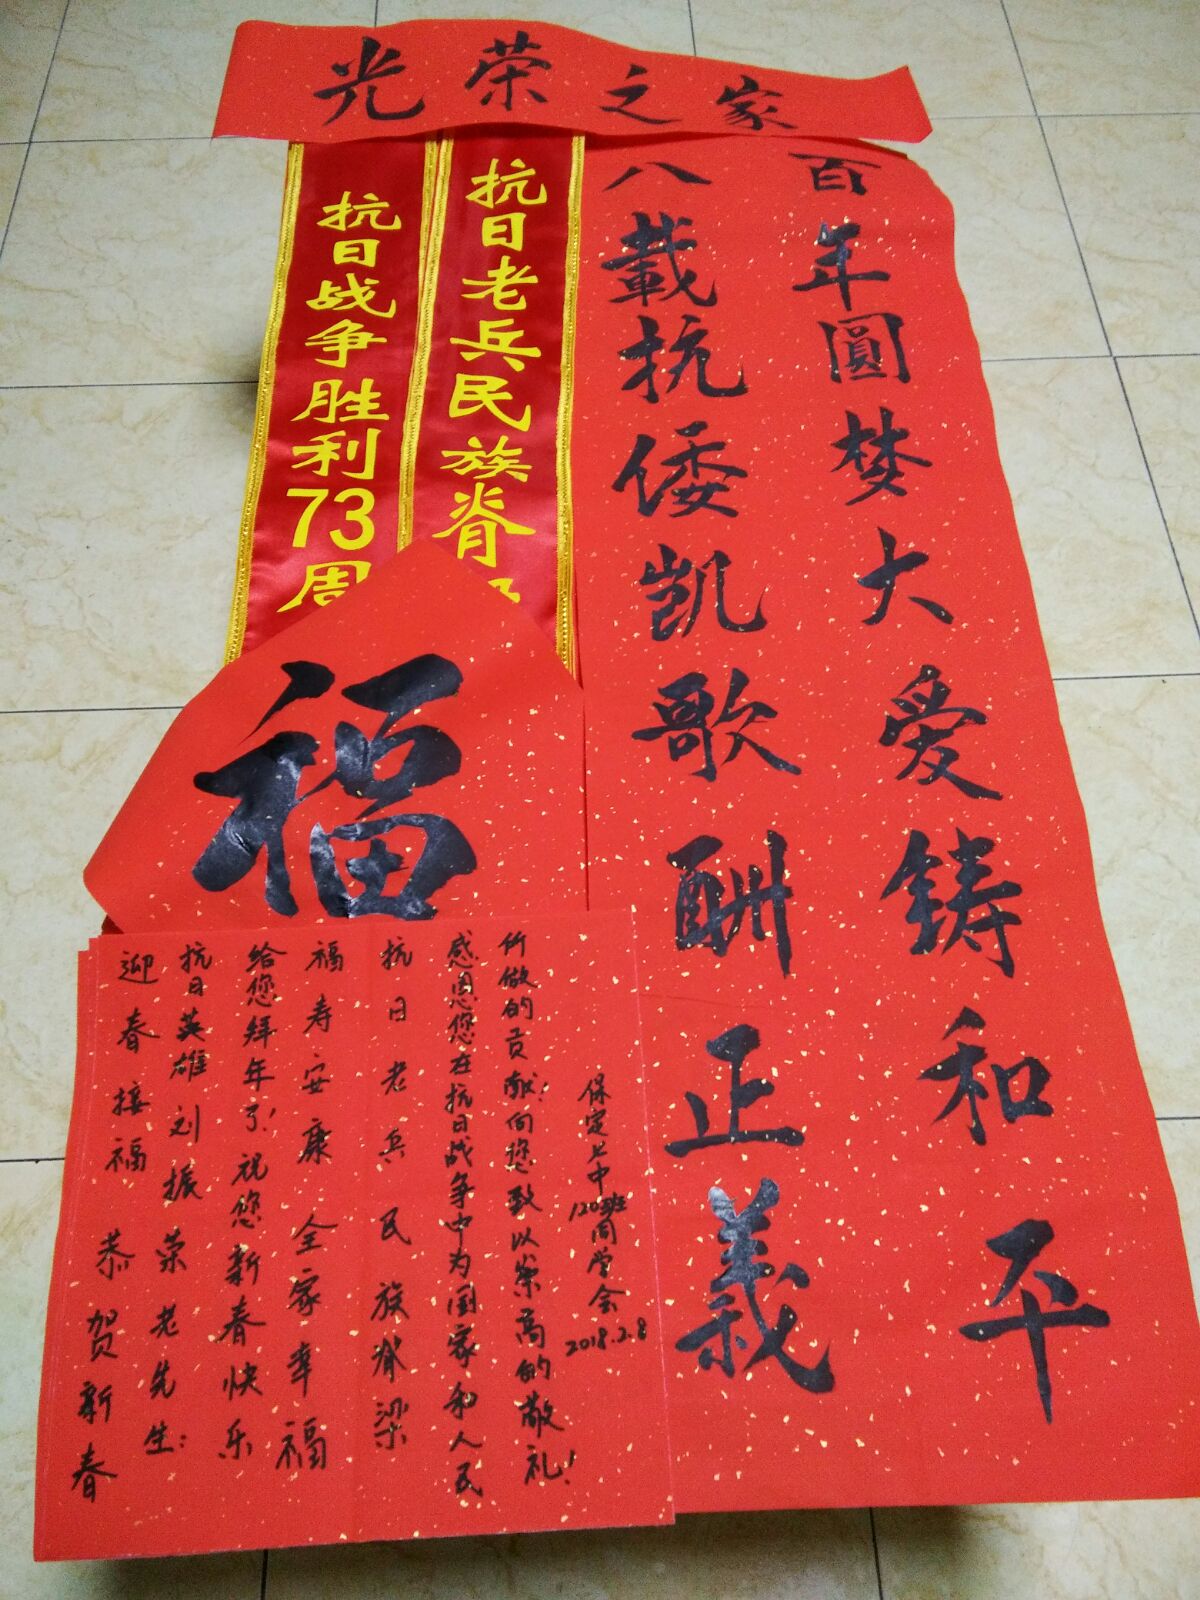 光荣之家
八載抗倭凯歌酬正義
百年圓梦大爱鋳和平
抗日战争胜利73周
抗日老兵民族脊
福
迎春接福 恭贺新春
抗日英雄刘振荣老先生:
给您拜年了!祝您新春快乐
福寿安康全家幸福
抗日老兵民族脊梁
感恩您在抗日战争中为国家和人民
所做的贡献!向您致以崇高的敬礼!
保定七中120班同学会
2018.2.8